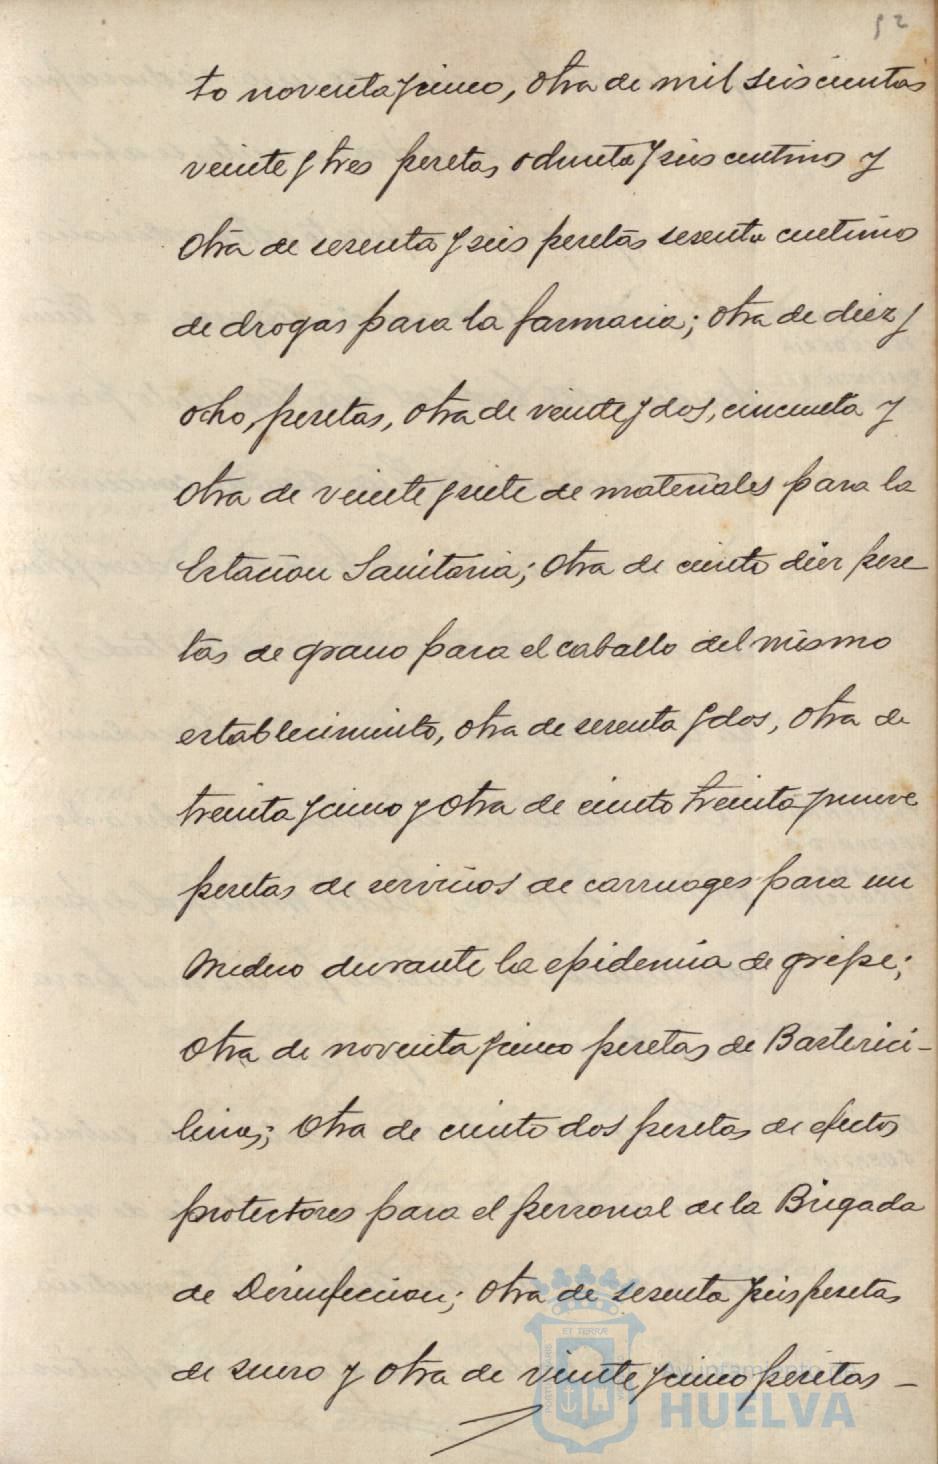 52
to noventa y cinco, otra de mil seiscientas
veinte y tres pesetas ochenta y seis centimos y
otra de sesenta y seis pesetas sesenta centimos
de drogas para la farmacia; otra de diez y
ocho, pesetas, otra de veinte y dos, cincuenta y
otra de veinte y siete de materiales para la
Estacion Sanitaria; otra de ciento diez pese-
tas de grano para el caballo del mismo
establecimiento, otra de sesenta y dos, otra de
treinta y cinco y otra de ciento treinta y nueve
pesetas de servicios de carruages para un
Medico durante la epidemia de gripe;
otra de noventa y cinco pesetas de Bacterici-
linas; otra de ciento dos pesetas de efectos
protectores para el personal de la Brigada
de Desinfeccion; otra de sesenta y seis pesetas
de suero y otra de veinte y cinco pesetas -
Ayuntamiento de
HUELVA